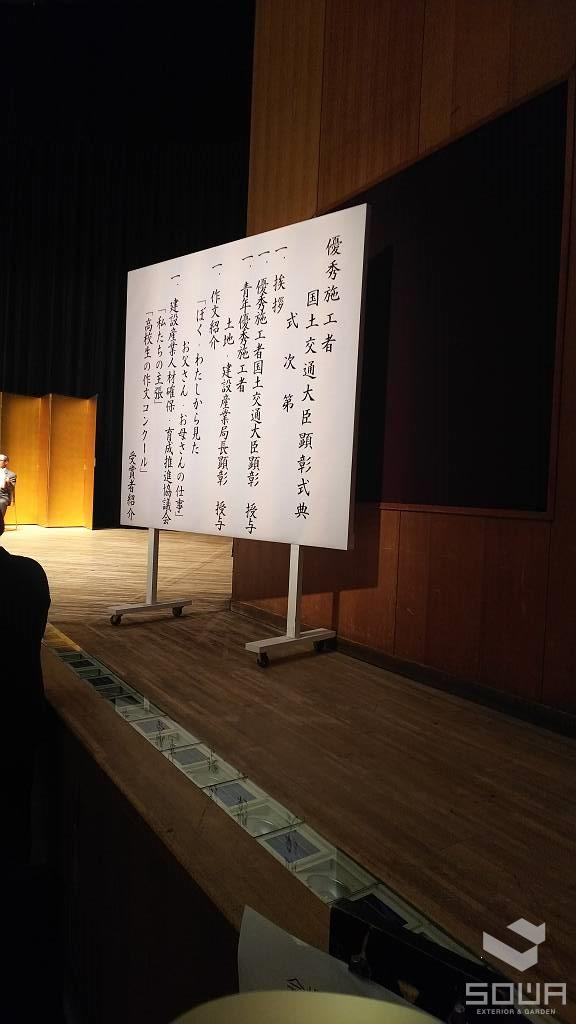 優秀施工者
国土交通大臣顕彰式典
式次第
一．挨拶
一．優秀施工者国土交通大臣顕彰 授与
一．青年優秀施工者
土地・建設産業局長顕彰 授与
一．作文紹介
「ぼく・わたしから見た
お父さん・お母さんの仕事」
一．建設産業人材確保・育成推進協議会
「私たちの主張」
「高校生の作文コンクール」
受賞者紹介
SOWA
EXTERIOR & GARDEN